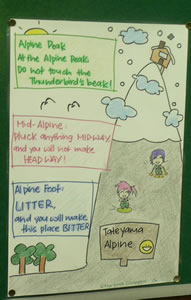 Alpine Peak
At the Alpine Peak
Do not touch the
Thunderbird's beak!
Mid-Alpine:
Pluck anything MIDWAY,
and you will not make
HEADWAY!
Alpine Foot:
LITTER,
and you will make
this place BITTER
Tateyama
Alpine